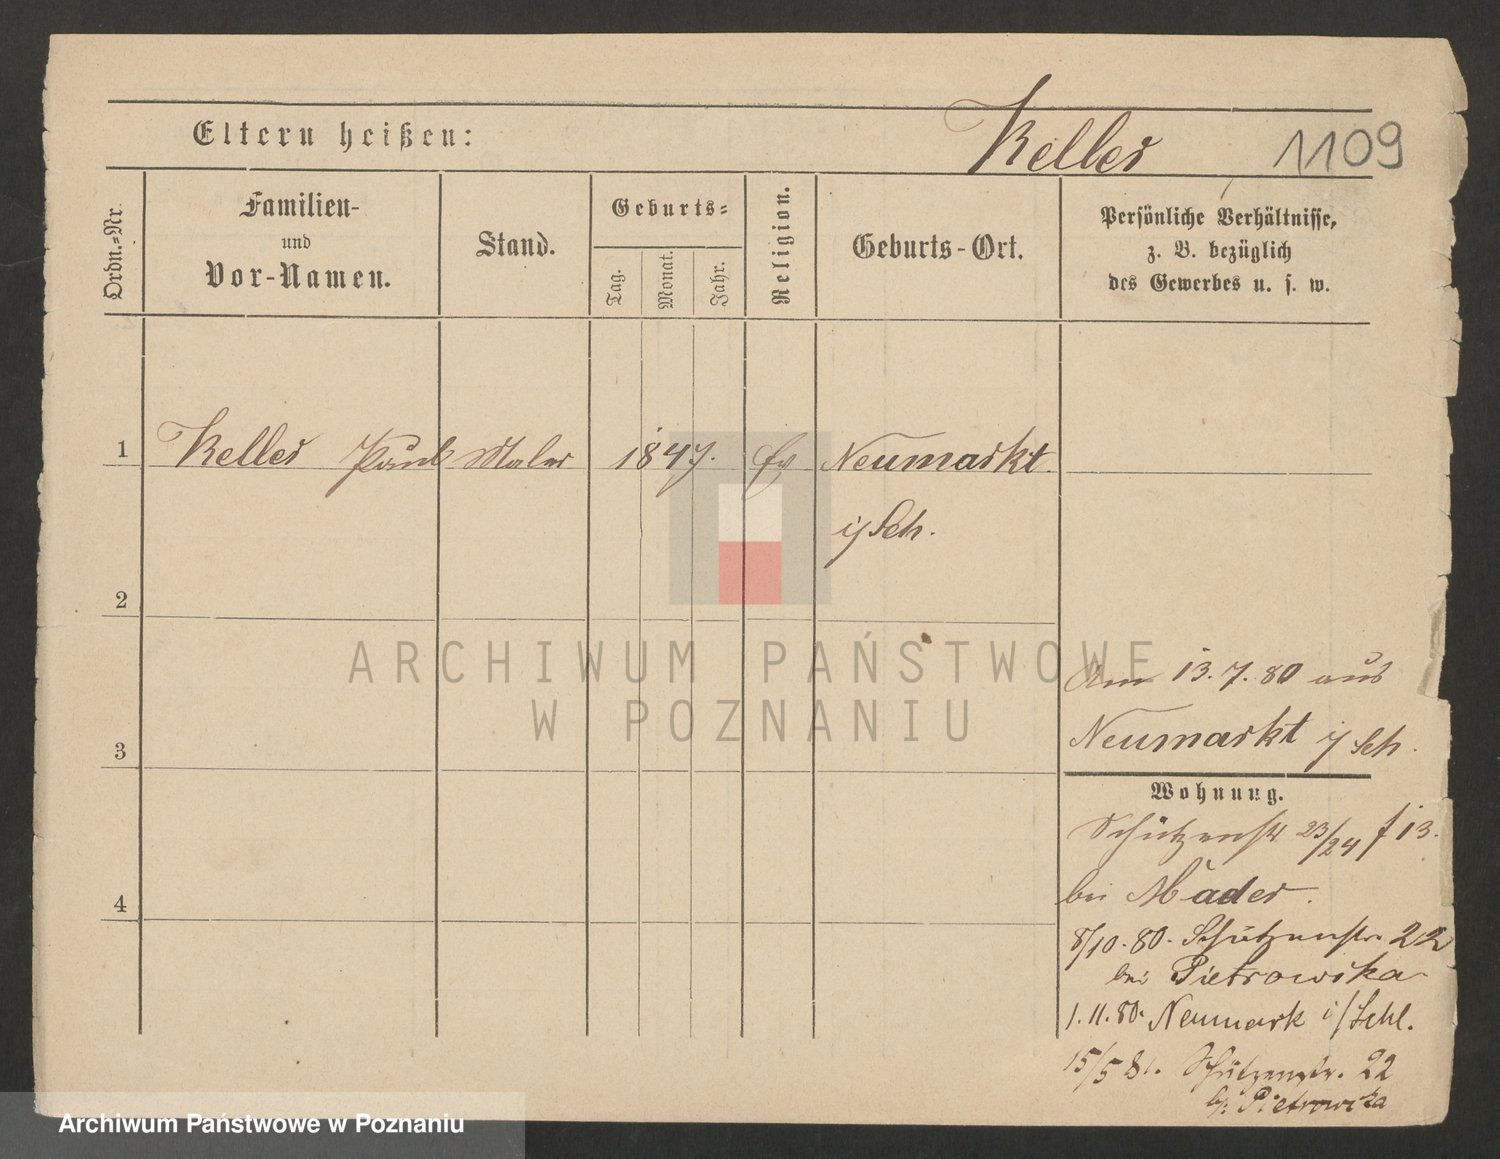 Eltern heißen: Keller 1109
Ordn.-Nr.
Familien-
und
Vor-Namen.
Stand.
Geburts-
Tag.
Monat.
Jahr.
Religion.
Geburts-Ort.
Persönliche Verhältnisse,
z. B. bezüglich
des Gewerbes u. s. w.
1 Keller Paul Maler 1847. Ev Neumarkt
i/Sch.
2
3
4
Am 13. 7. 80 aus
Neumarkt i/Sch.
Wohnung.
Schützenstr 23/24 f 13.
bei Mader.
8/10. 80. Schützenstr. 22
bei Pietrowska
1. 11. 80. Neumark i/Schl.
15/5 81. Schützenstr. 22
b/ Pietrowska
ARCHIWUM PAŃSTWOWE
W POZNANIU
Archiwum Państwowe w Poznaniu